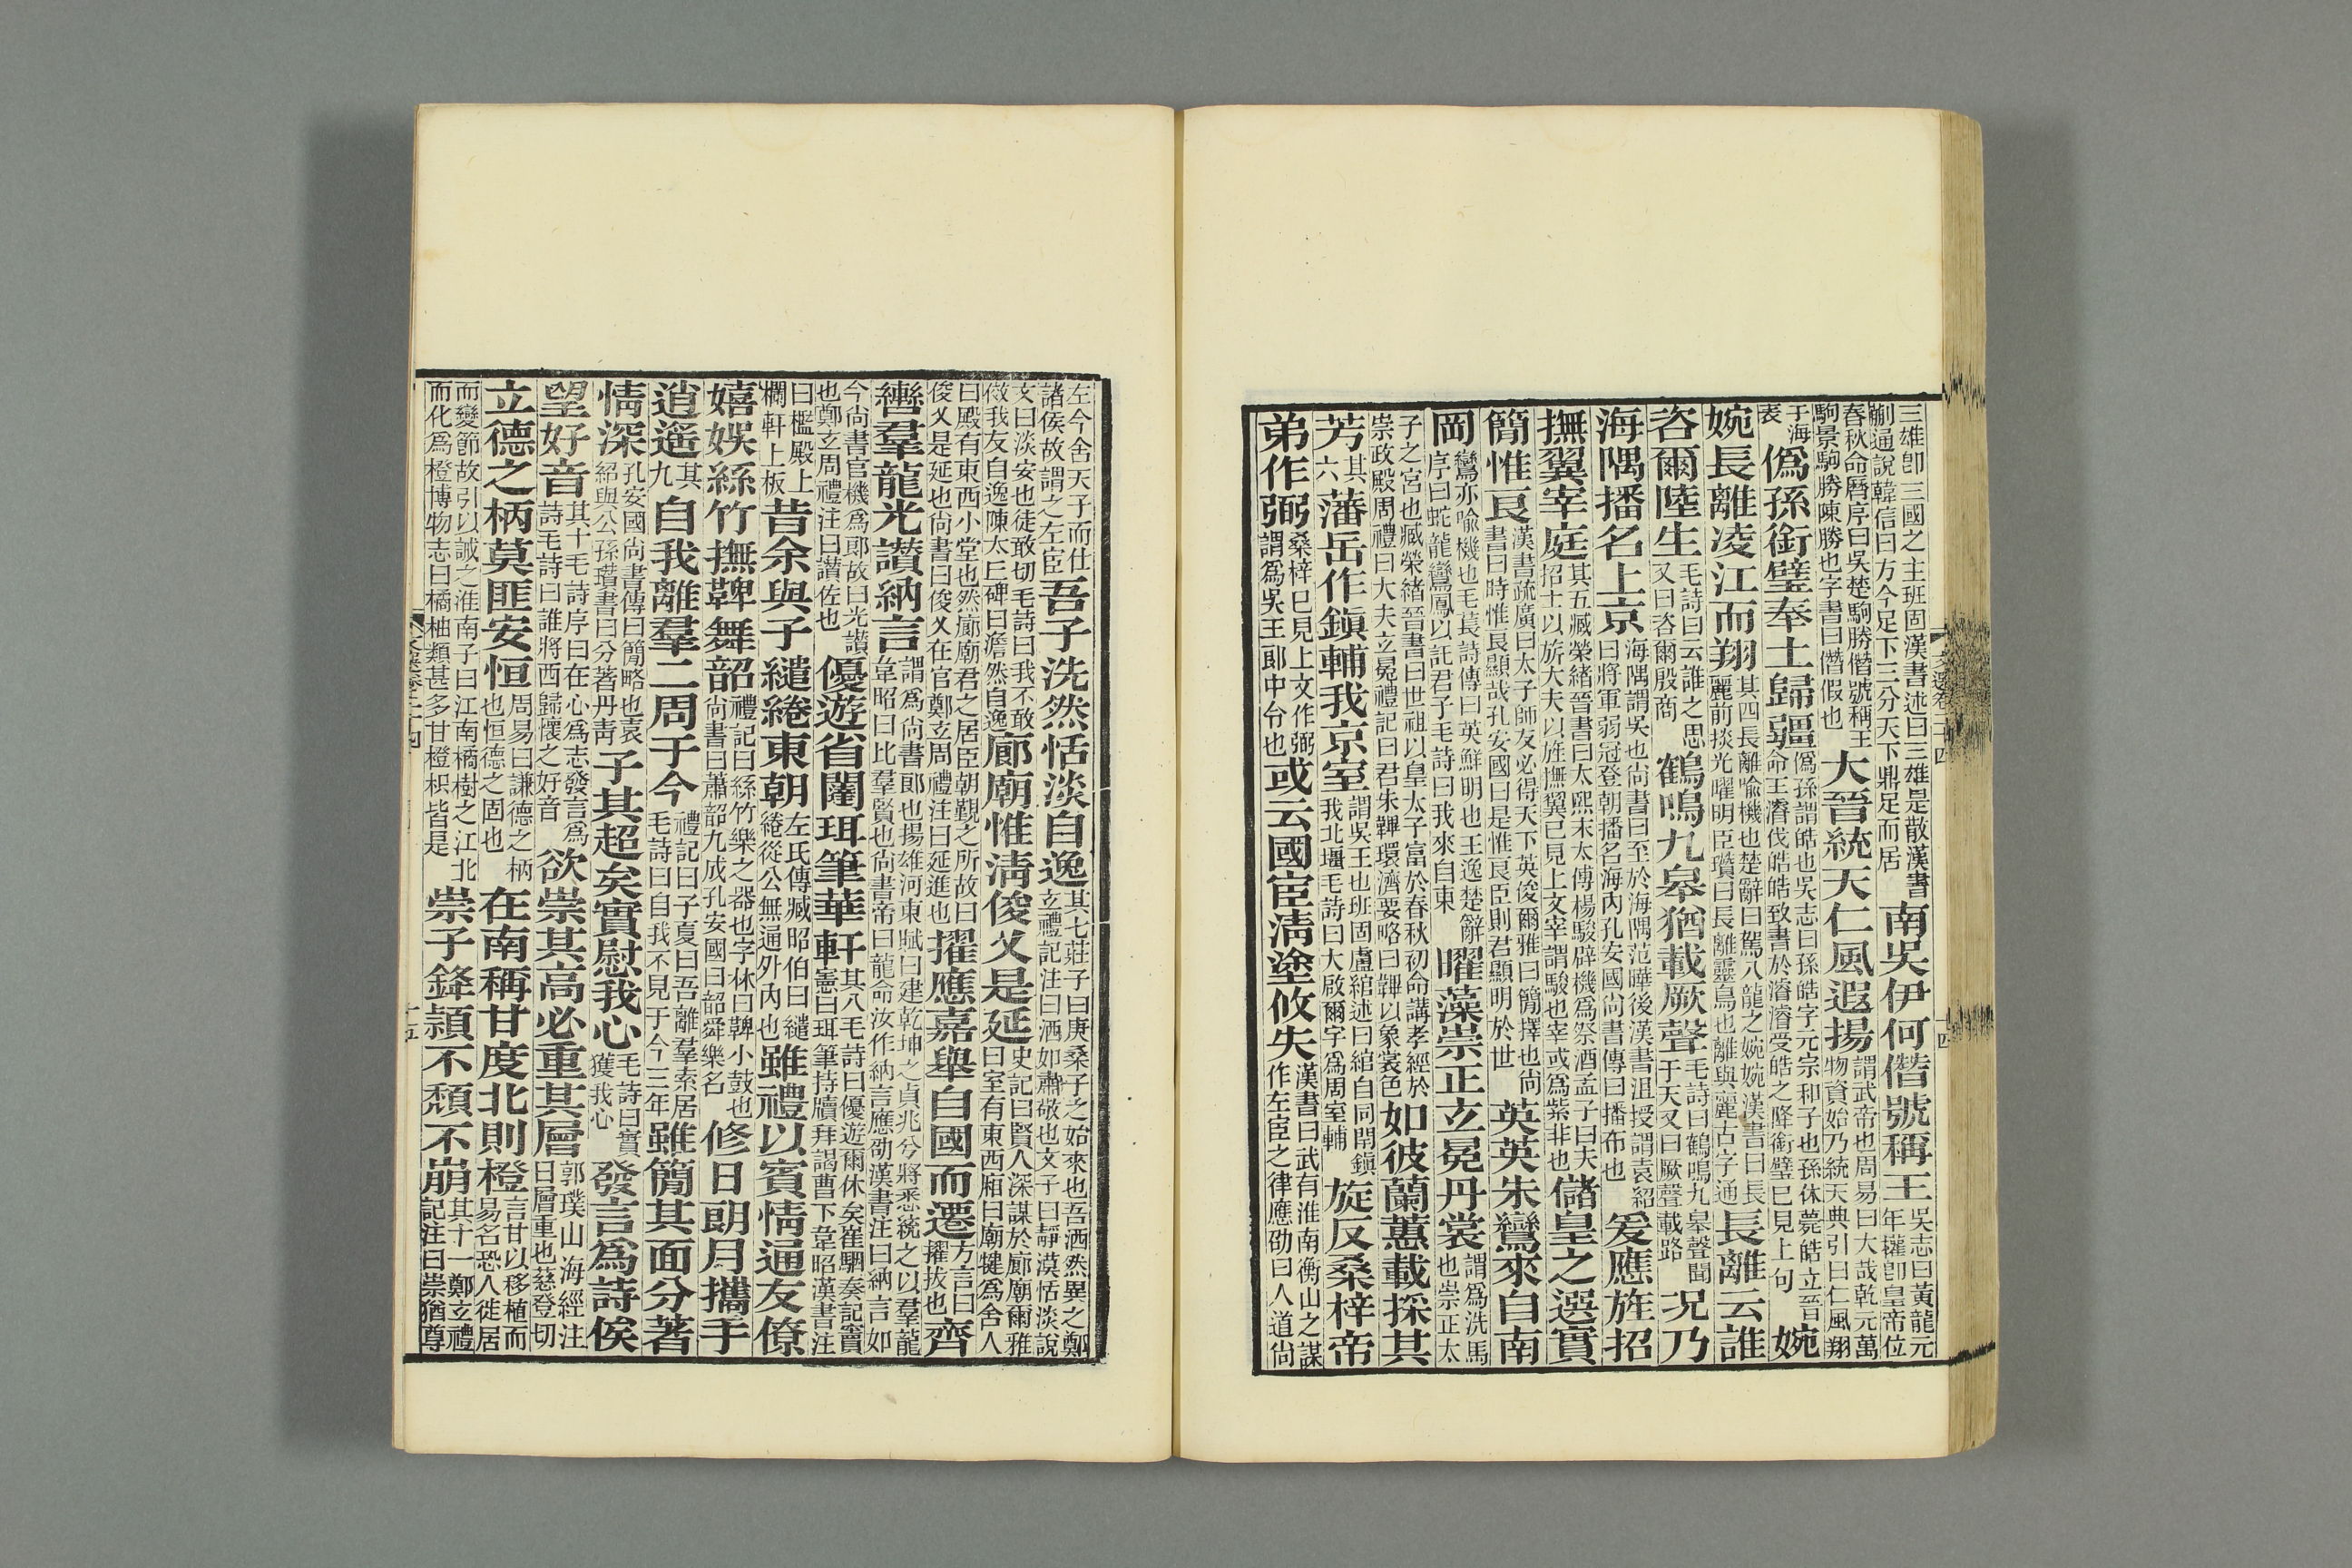 三雄卽三國之主班固漢書述曰三雄是散漢書蒯通說韓信曰方今足下三分天下鼎足而居南吳伊何僭號稱王吳志曰黃龍元年權卽皇帝位
春秋命曆序曰吳楚駒勝僭號稱王駒景駒勝陳勝也字書曰僭假也大晉統天仁風遐揚謂武帝也周易曰大哉乾元萬物資始乃統天典引曰仁風翔
于海表僞孫銜璧奉土歸疆僞孫謂皓也吳志曰孫皓字元宗和子也孫休薨皓立晉命王濬伐皓皓致書於濬濬受皓之降銜璧已見上句婉
婉長離凌江而翔其四長離喻機也楚辭曰駕八龍之婉婉漢書曰長麗前掞光曜明臣瓚曰長離靈鳥也離與麗古字通長離云誰
咨爾陸生毛詩曰云誰之思又曰咨爾殷商鶴鳴九皋猶載厥聲毛詩曰鶴鳴九皋聲聞于天又曰厥聲載路況乃
海隅播名上京海隅謂吳也尙書曰至於海隅范曄後漢書沮授謂袁紹曰將軍弱冠登朝播名海內孔安國尙書傳曰播布也爰應旌招
撫翼宰庭其五臧榮緒晉書曰太熙末太傅楊駿辟機爲祭酒孟子曰夫招士以旂大夫以旌撫翼已見上文宰謂駿也宰或爲紫非也儲皇之選實
簡惟良漢書疏廣曰太子師友必得天下英俊爾雅曰簡擇也尙書曰時惟良顯哉孔安國曰是惟良臣則君顯明於世英英朱鸞來自南
岡鸞亦喻機也毛萇詩傳曰英鮮明也王逸楚辭序曰虬龍鸞鳳以託君子毛詩曰我來自東曜藻崇正玄冕丹裳謂爲洗馬也崇正太
子之宮也臧榮緒晉書曰世祖以皇太子富於春秋初命講孝經於崇政殿周禮曰大夫玄冕禮記曰君朱韠環濟要略曰韠以象裳色如彼蘭蕙載採其
芳其六藩岳作鎭輔我京室謂吳王也班固盧綰述曰綰自同閈鎭我北疆毛詩曰大啟爾宇爲周室輔旋反桑梓帝
弟作弼桑梓已見上文作弼謂爲吳王郞中令也或云國宦淸塗攸失漢書曰武有淮南衡山之謀作左臣之律應劭曰人道尙
左今舍天子而仕諸侯故謂之左臣吾子洗然恬淡自逸其七莊子曰庚桑子之始來也吾洒然異之鄭玄禮記注曰洒如肅敬也文子曰靜漠恬淡說
文曰淡安也徒敢切毛詩曰我不敢傚我友自逸陳太丘碑曰澹然自逸廊廟惟淸俊乂是延史記曰賢人深謀於廊廟爾雅曰室有東西廂曰廟犍爲舍人
曰殿有東西小堂也然廊廟君之居臣朝覲之所故曰俊乂是延也尙書曰俊乂在官鄭玄周禮注曰延進也擢應嘉舉自國而遷方言曰擢拔也齊
轡羣龍光讃納言謂爲尙書郞也揚雄河東賦曰建乾坤之貞兆兮將悉統之以羣龍韋昭曰比羣賢也尙書帝曰龍命汝作納言應劭漢書注曰納言如
今尙書官機爲郞故曰光讃也鄭玄周禮注曰讃佐也優遊省闥珥筆華軒其八毛詩曰優遊爾休矣崔駰奏記竇憲曰珥筆持牘拜謁曹下韋昭漢書注
曰檻殿上欄軒上板昔余與子繾綣東朝左氏傳臧昭伯曰繾綣從公無通外內也雖禮以賓情通友僚
嬉娛絲竹撫鞞舞韶禮記曰絲竹樂之器也字林曰鞞小鼓也尙書曰蕭韶九成孔安國曰韶舜樂名修日朗月攜手
逍遥其九自我離羣二周于今禮記曰子夏曰吾離羣索居毛詩曰自我不見于今三年雖簡其面分著
情深孔安國尙書傳曰簡略也袁紹與公孫瓚書曰分著丹靑子其超矣實慰我心毛詩曰實獲我心發言爲詩俟
望好音其十毛詩序曰在心爲志發言爲詩毛詩曰誰將西歸懷之好音欲崇其高必重其層郭璞山海經注曰層重也慈登切
立德之柄莫匪安恒周易曰謙德之柄也恒德之固也在南稱甘度北則橙言甘以移植而易名恐人徙居
而變節故引以誡之淮南子曰江南橘樹之江北而化爲橙博物志曰橘柚類甚多甘橙枳皆是崇子鋒穎不頹不崩其十一鄭玄禮記注曰崇猶尊